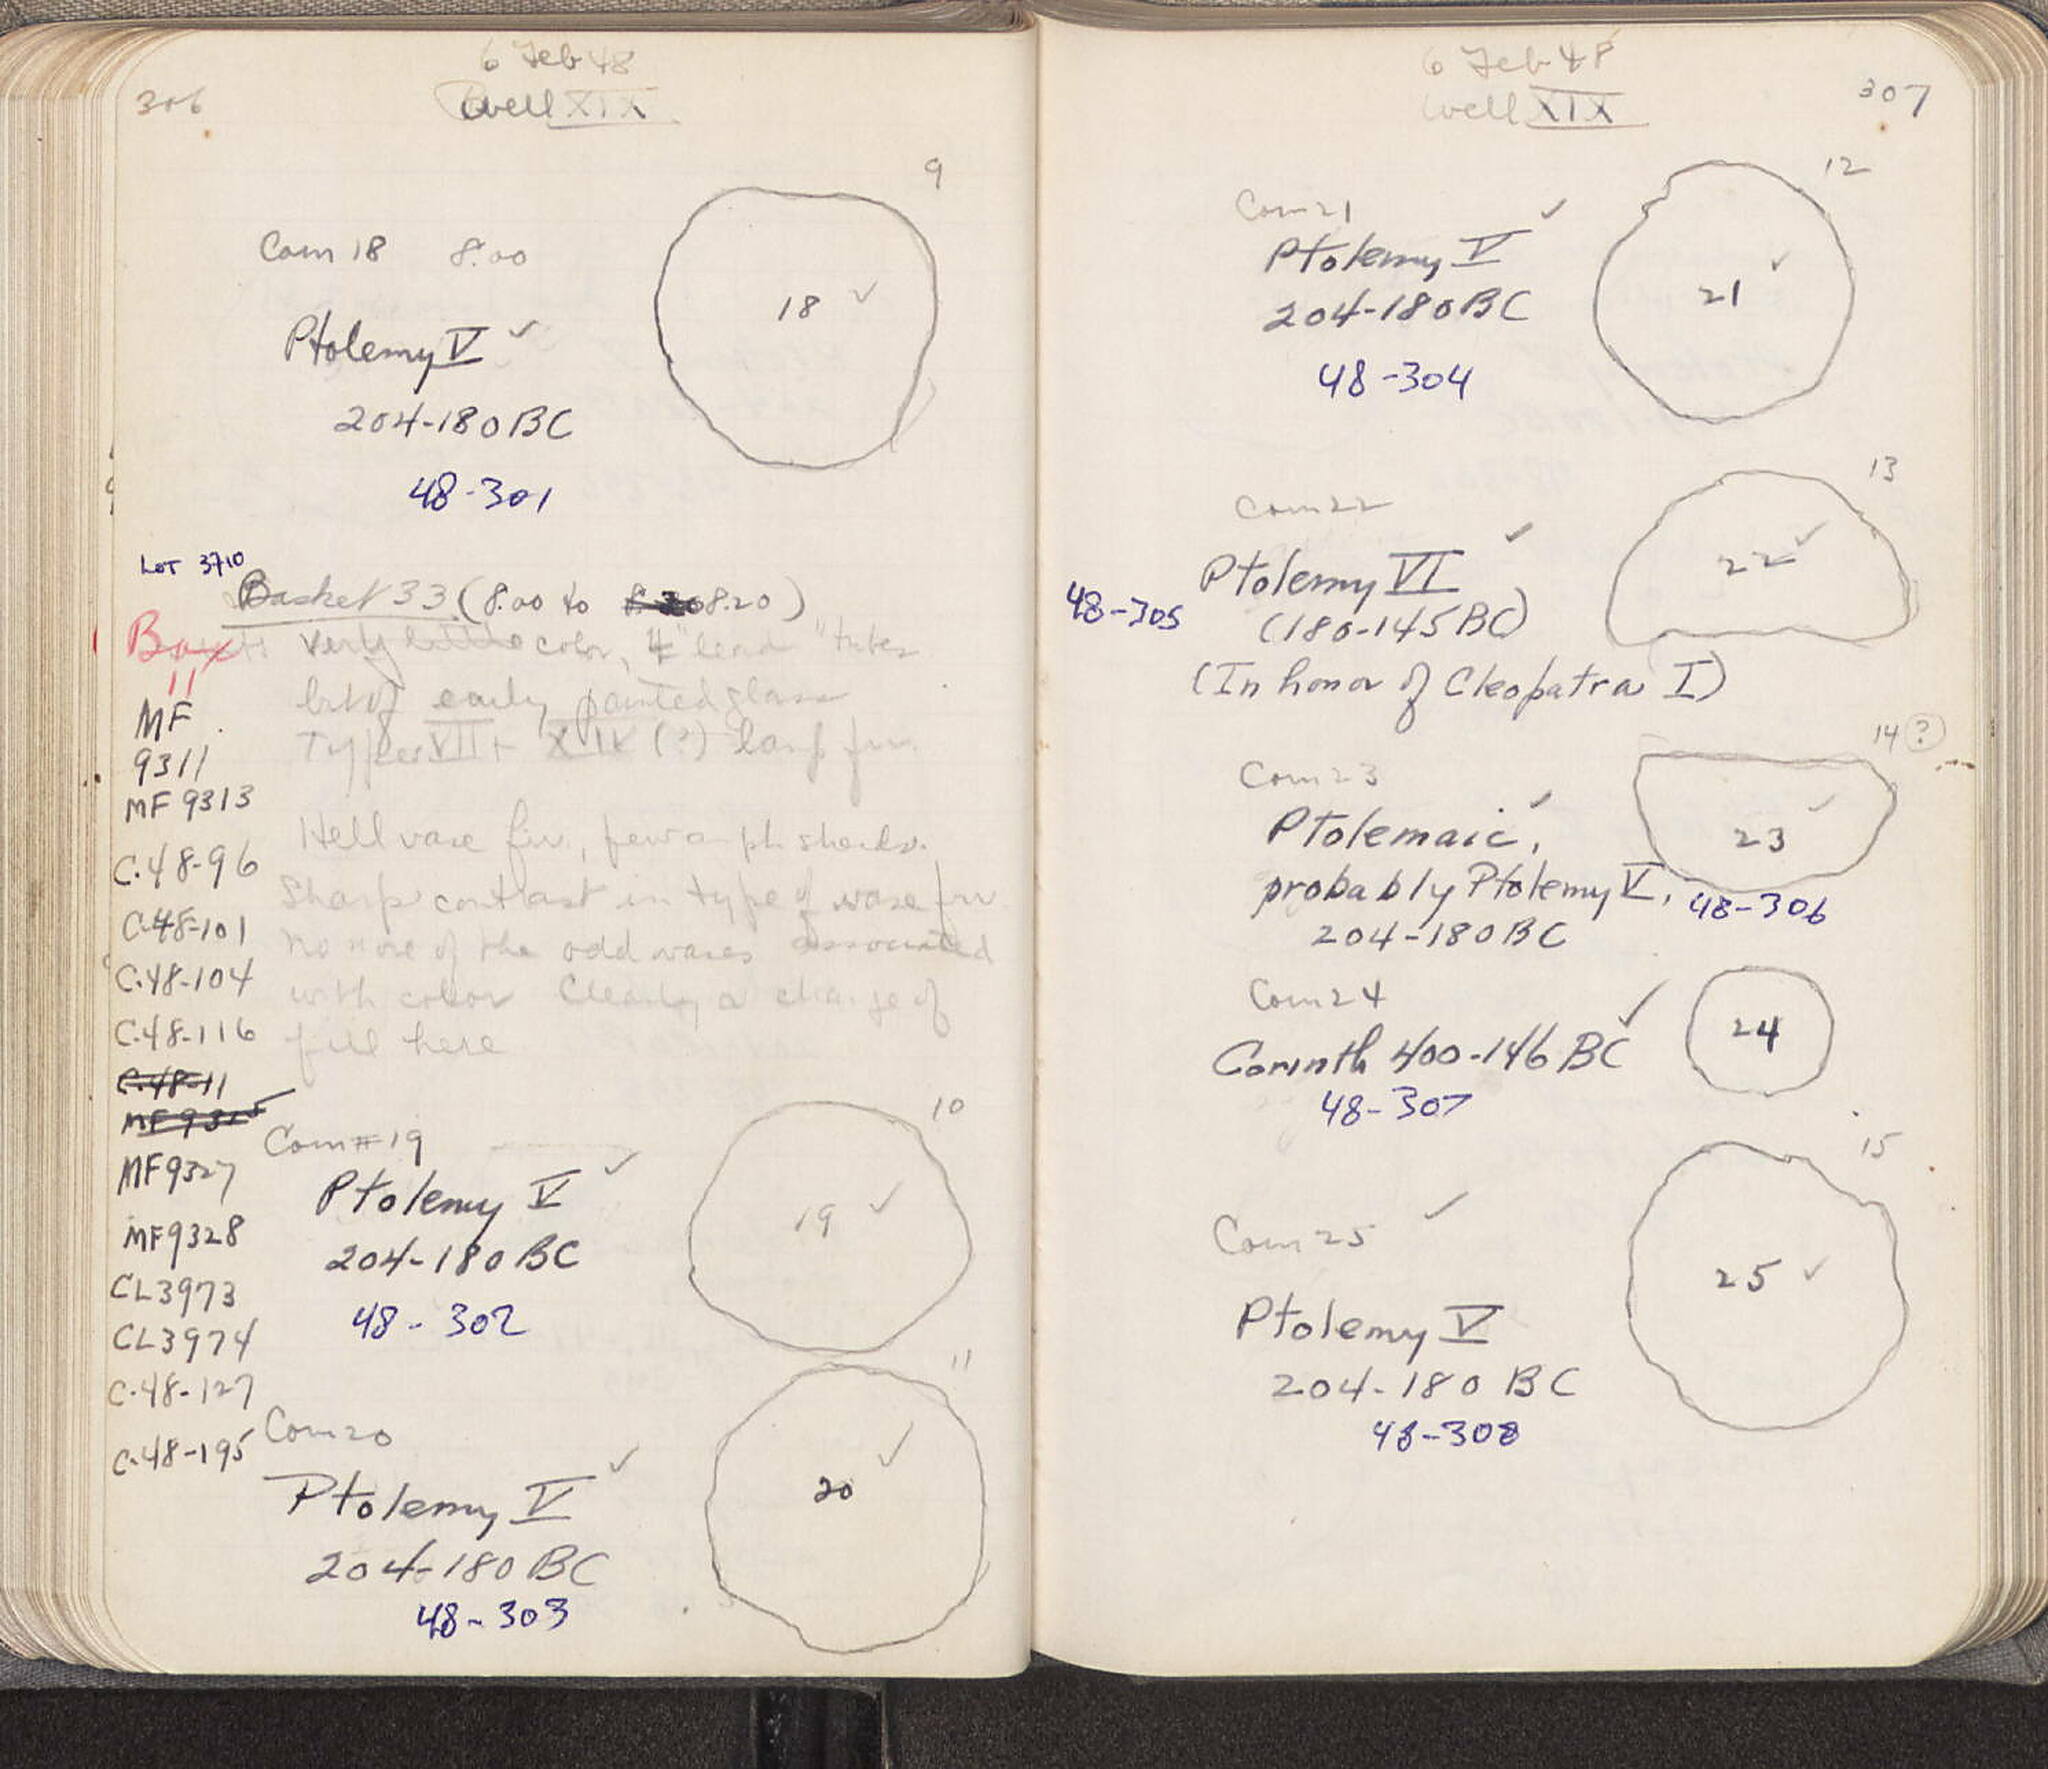 306
6 Feb 48
Well XIX
9
Coin 18 8.00
18 ✓
Ptolemy V ✓
204-180 BC
48-301
LOT 3710
Basket 33 (8.00 to 8.20)
Box
11
very little color, "lead" tubes
bit of early painted glass
Types VII + XIV (?) lamp frr.
Hell vase frr., few amph sherds.
Sharp contrast in type of vase frr.
No more of the odd vases associated
with color Clearly a change of
fill here
MF
9311
MF 9313
C.48-96
C.48-101
C.48-104
C.48-116
C.48-11
MF 9325
MF 9327
MF 9328
CL 3973
CL 3974
C.48-127
C.48-195
10
Coin #19
19 ✓
Ptolemy V ✓
204-180 BC
48-302
11
Coin 20
20 ✓
Ptolemy V ✓
204-180 BC
48-303
6 Feb 48
Well XIX
307
12
Coin 21
Ptolemy V ✓
21 ✓
204-180 BC
48-304
13
Coin 22
22 ✓
Ptolemy VI ✓
48-305
(180-145 BC)
(In honor of Cleopatra I)
14 ?
Coin 23
Ptolemaic, ✓
23 ✓
probably Ptolemy V,
48-306
204-180 BC
Coin 24
24
Corinth 400-146 BC ✓
48-307
15
Coin 25 ✓
25 ✓
Ptolemy V
204-180 BC
48-308